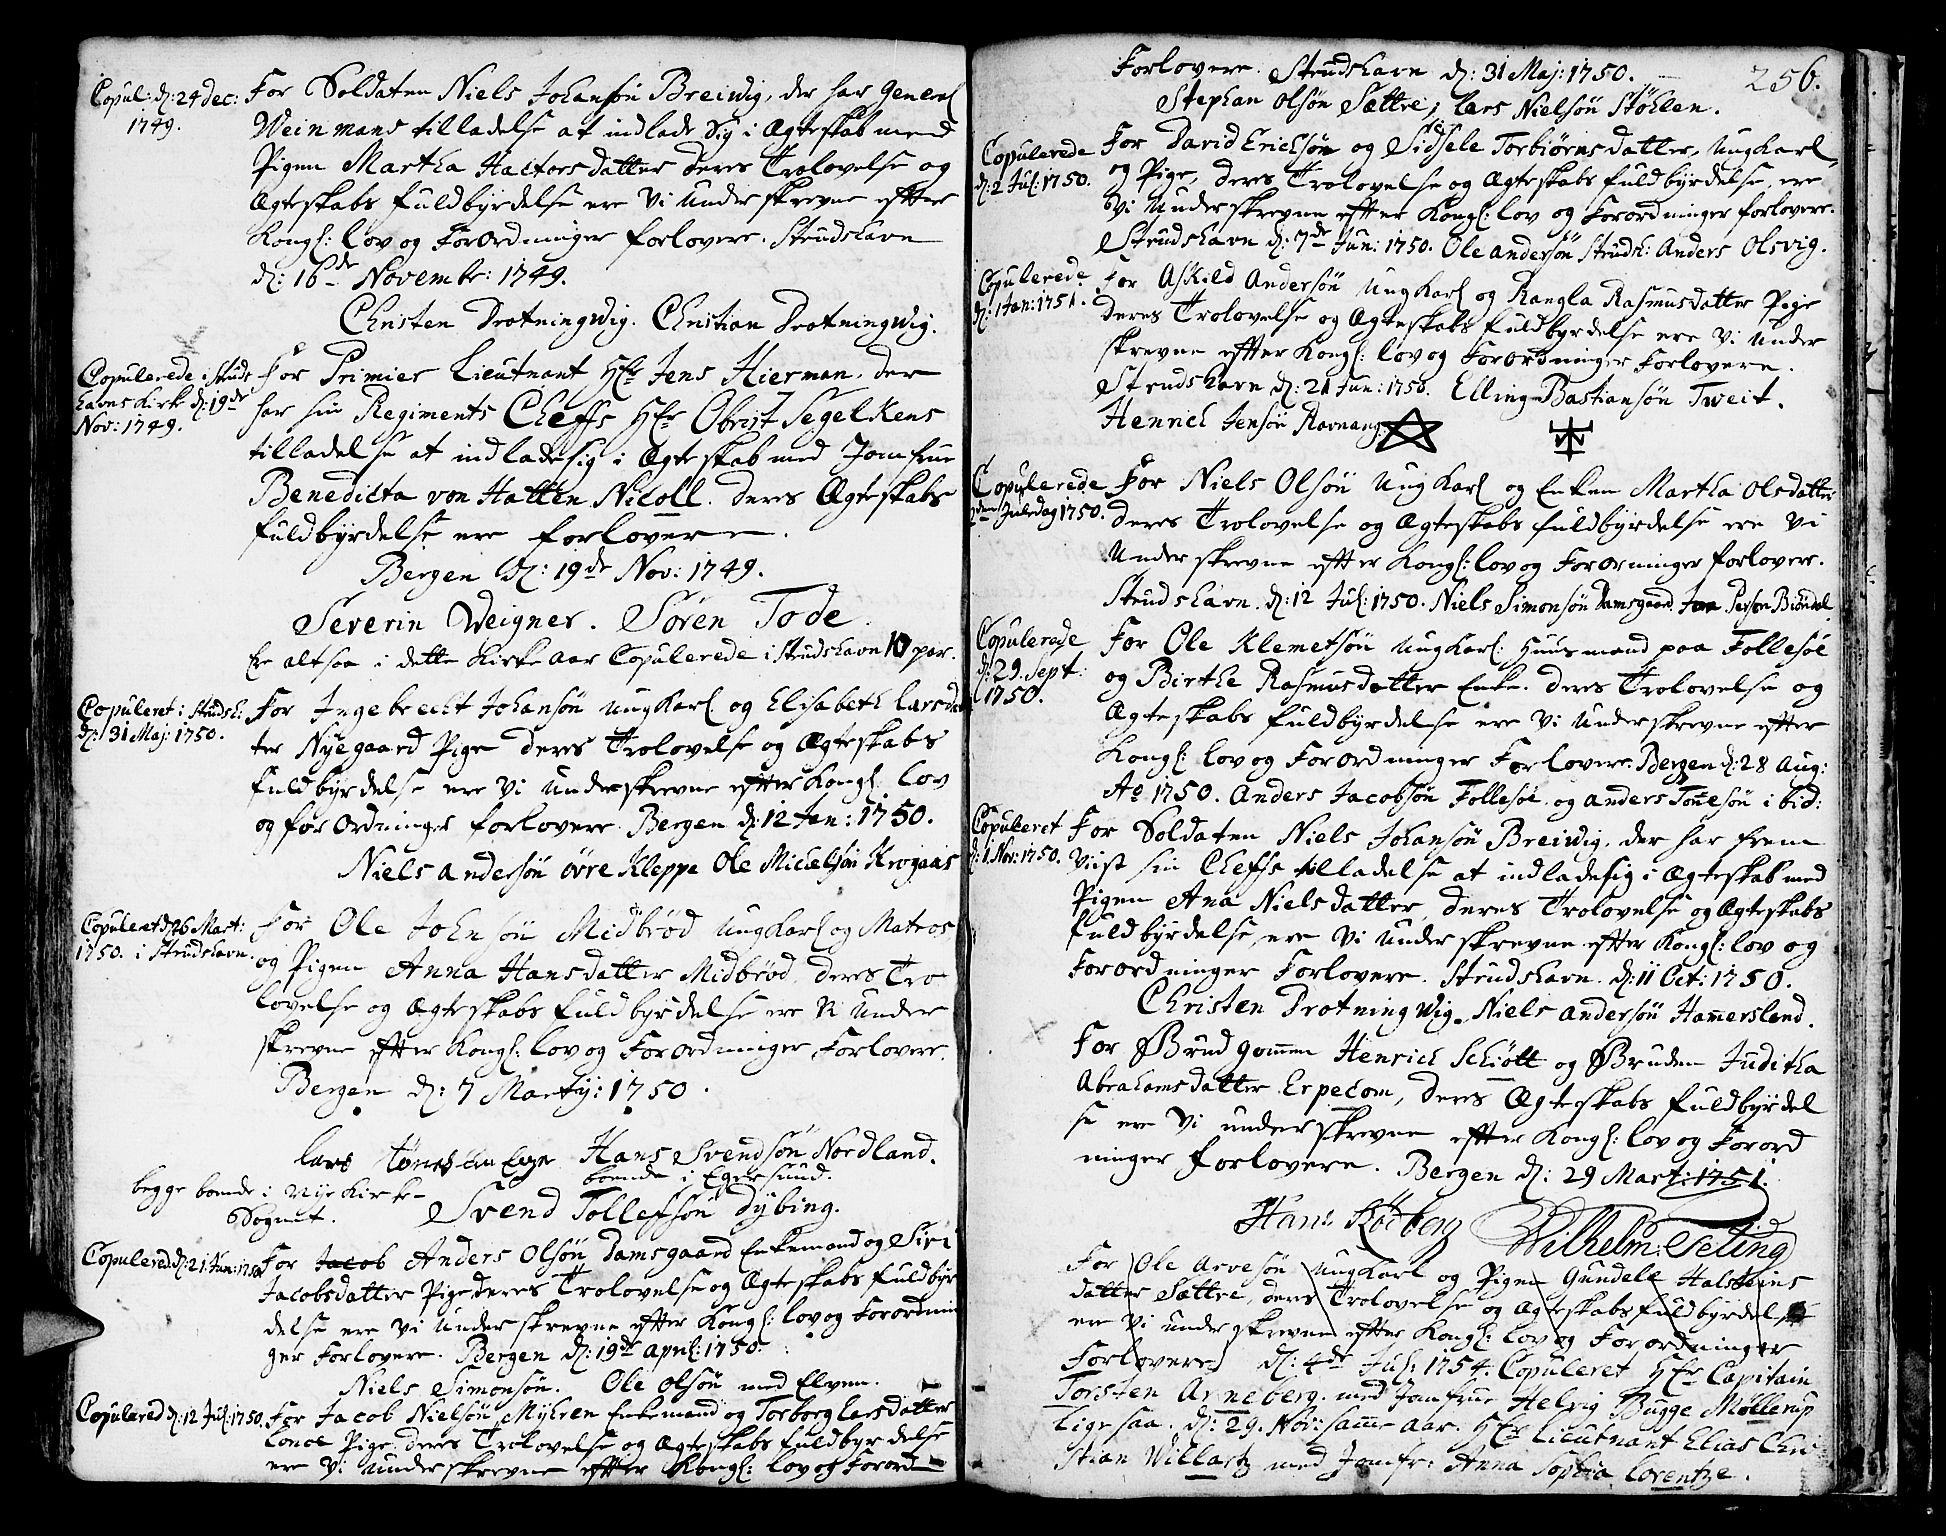 Copul: d: 24 dec:
1749.
For Soldaten Niels Johansön Breiwig, der har General
Weinmans tilladelse at indlade Sig i Ægteskab med
Pigen Martha Halforsdatter deres Trolovelse og
Ægteskabs fuldbyrdelse ere Vi Underskrevne efter
Kongl: lov og ForOrdninger forlovere. Strudshavn
d: 16de Novembr: 1749.
Christen Drotningwig. Christian Drotningwig.
Copulerede i Struds
havns Kirke d: 19de
Nov: 1749.
For Primier Lieutnant Hr Jens Hierman, der
har sin Regiments Cheffs Hr Obrist Segelkens
tilladelse at indlade sig i Ægteskab med Jomfrue
Benedicta von Hatten Nicoll. deres Ægteskabs
fuldbyrdelse ere forlovere.
Bergen d: 19de Nov: 1749.
Severin Weigner. Sören Tode.
Er altsaa i dette Kirke aar Copulerede i Strudshavn 10 par.
Copuleret i Strudsh:
d: 31 Maj: 1750.
For Ingebrecht Johansön ungKarl og Elisabeth Larsdat
ter Nyegaard Pige deres Trolovelse og Ægteskabs
fuldbyrdelse ere Vi Underskrevne efter Kongl: lov
og forOrdninger forlovere. Bergen d: 12 Jan: 1750.
Niels Andersön övre Kleppe Ole Michelsön Krogaas
Copuleret d: 16 Mart:
1750. i Strudshavn.
For Ole Johnsön Midbröd ungKarl og Matros
og Pigen Anna Hansdatter Midbröd, deres Tro
lovelse og Ægteskabs fuldbyrdelse ere Vi Under
skrevne efter Kongl: lov og Forordninger Forlovere.
Bergen d: 7 Martij: 1750.
Lars Hans Svendsön Nordland.
begge boende i Nye Kirke-
boende i Egersund.
Sognet.
Svend Tollefsön Dybing.
Copulered d: 21 Jun: 1750
For Jacob Anders Olsön Damsgaard Enkemand og Siri
Jacobsdatter Pige deres Trolovelse og Ægteskabs fuldbyr
delse ere Vi Underskrevne efter Kongl: lov og Forordnin
ger Forlovere. Bergen d: 19de April: 1750.
Niels Simonsön. Ole Olsön med Elven.
Copulered d: 12 Jul: 1750.
For Jacob Nielsön Myhren Enkemand og Torborg Larsdatter
Lonoe Pige deres Trolovelse og Ægteskabs fuldbyrdelse
ere Vi Underskrevne efter Kongl: lov og Forord
256.
Forlovere. Strudshavn d: 31 Maj: 1750.
Stephan Olsön Sættre, Lars Nielsön Stöhlen.
Copulerede
d: 2 Jul: 1750.
For David Erichsön og Sidsele Torbiörnsdatter, UngKarl
og Pige, deres Trolovelse og Ægteskabs fuldbyrdelse, ere
Vi Underskrevne efter Kongl: lov og Forordninger forlovere.
Strudshavn d: 7de Jun: 1750. Ole Andersön Strudsh: Anders Olsvig.
Copulerede
d: 1 Jan: 1751.
For Askild Andersön UngKarl og Rangla Rasmusdatter Pige
deres Trolovelse og Ægteskabs fuldbyrdelse ere Vi Under
skrevne efter Kongl: lov og Forordninger Forlovere.
Strudshavn d: 21 Jun: 1750. Elling Bastiansön Tweit.
Henrich Jensön Ravnang.
Copulerede
2den Juledag 1750.
For Niels Olsön UngKarl og Enken Martha Olsdatter
deres Trolovelse og Ægteskabs fuldbyrdelse ere Vi
Underskrevne efter Kongl: lov og Forordninger forlovere.
Strudshavn d: 12 Jul: 1750. Niels Simonsön Damsgaard Person Bröndal
Copulerede
d: 29. Sept:
1750.
For Ole Klemetsön UngKarl: Huusmand paa Follesöe
og Birthe Rasmusdatter Enke. deres Trolovelse og
Ægteskabs fuldbyrdelse ere Vi Underskrevne efter
Kongl: lov og ForOrdninger Forlovere. Bergen d: 28 Aug:
Ao 1750. Anders Jacobsön Follesöe, og Anders Tönnesön ibid:
Copuleret
d: 1 Nov: 1750.
For Soldaten Niels Johansön Breiwig, der har frem
Viist sin Cheffs tilladelse at indlade sig i Ægteskab med
Pigen Ana Nielsdatter, deres Trolovelse og Ægteskabs
fuldbyrdelse, ere Vi Underskrevne efter Kongl: lov og
Forordninger Forlovere. Strudshavn. d: 11 Oct: 1750.
Christen Drotningwig. Niels Andersön Hamersland.
For Brudgommen Henrich Schiött og Bruden Juditha
Abrahamsdatter Erpecom, deres Ægteskabs fuldbyrdel
se ere Vi underskrevne efter Kongl: lov og Forord
ninger forlovere. Bergen d: 29 Mart: 1751.
Hans Wilhelm: Seting
For Ole Arvesön ungKarl og Pigen Gundele Halsteins
datter Sættre, deres Trolovelse og Ægteskabs fuldbyrdelse
ere Vi underskrevne efter Kongl: lov og Forordninger
Forlovere d: 4de Jul: 1754. Copuleret Hr Capitain
Torsten Arneberg med Jomfrue Helvig Bugge Möllerup
ligesaa. d: 29. Nov: samme aar. Hr Lieutnant Elias Chri
stian Willartz med Jomfr: Anna Sophia Lorentze.